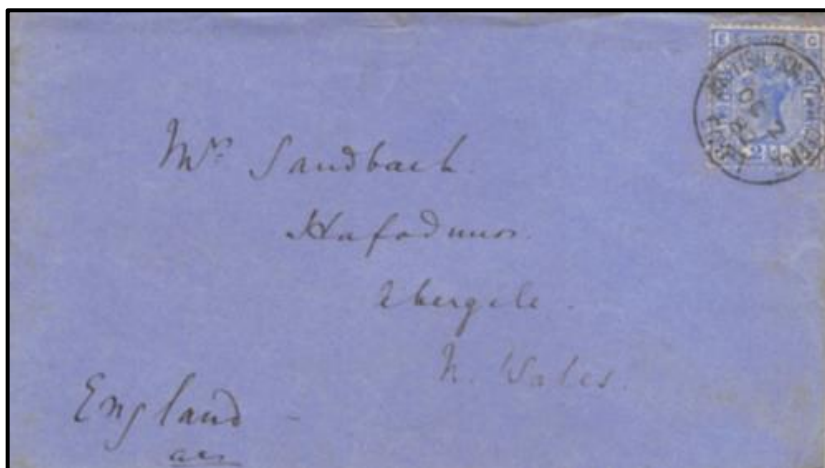 Mrs Sandbach
Hafodunos
Abergele
N. Wales.
England